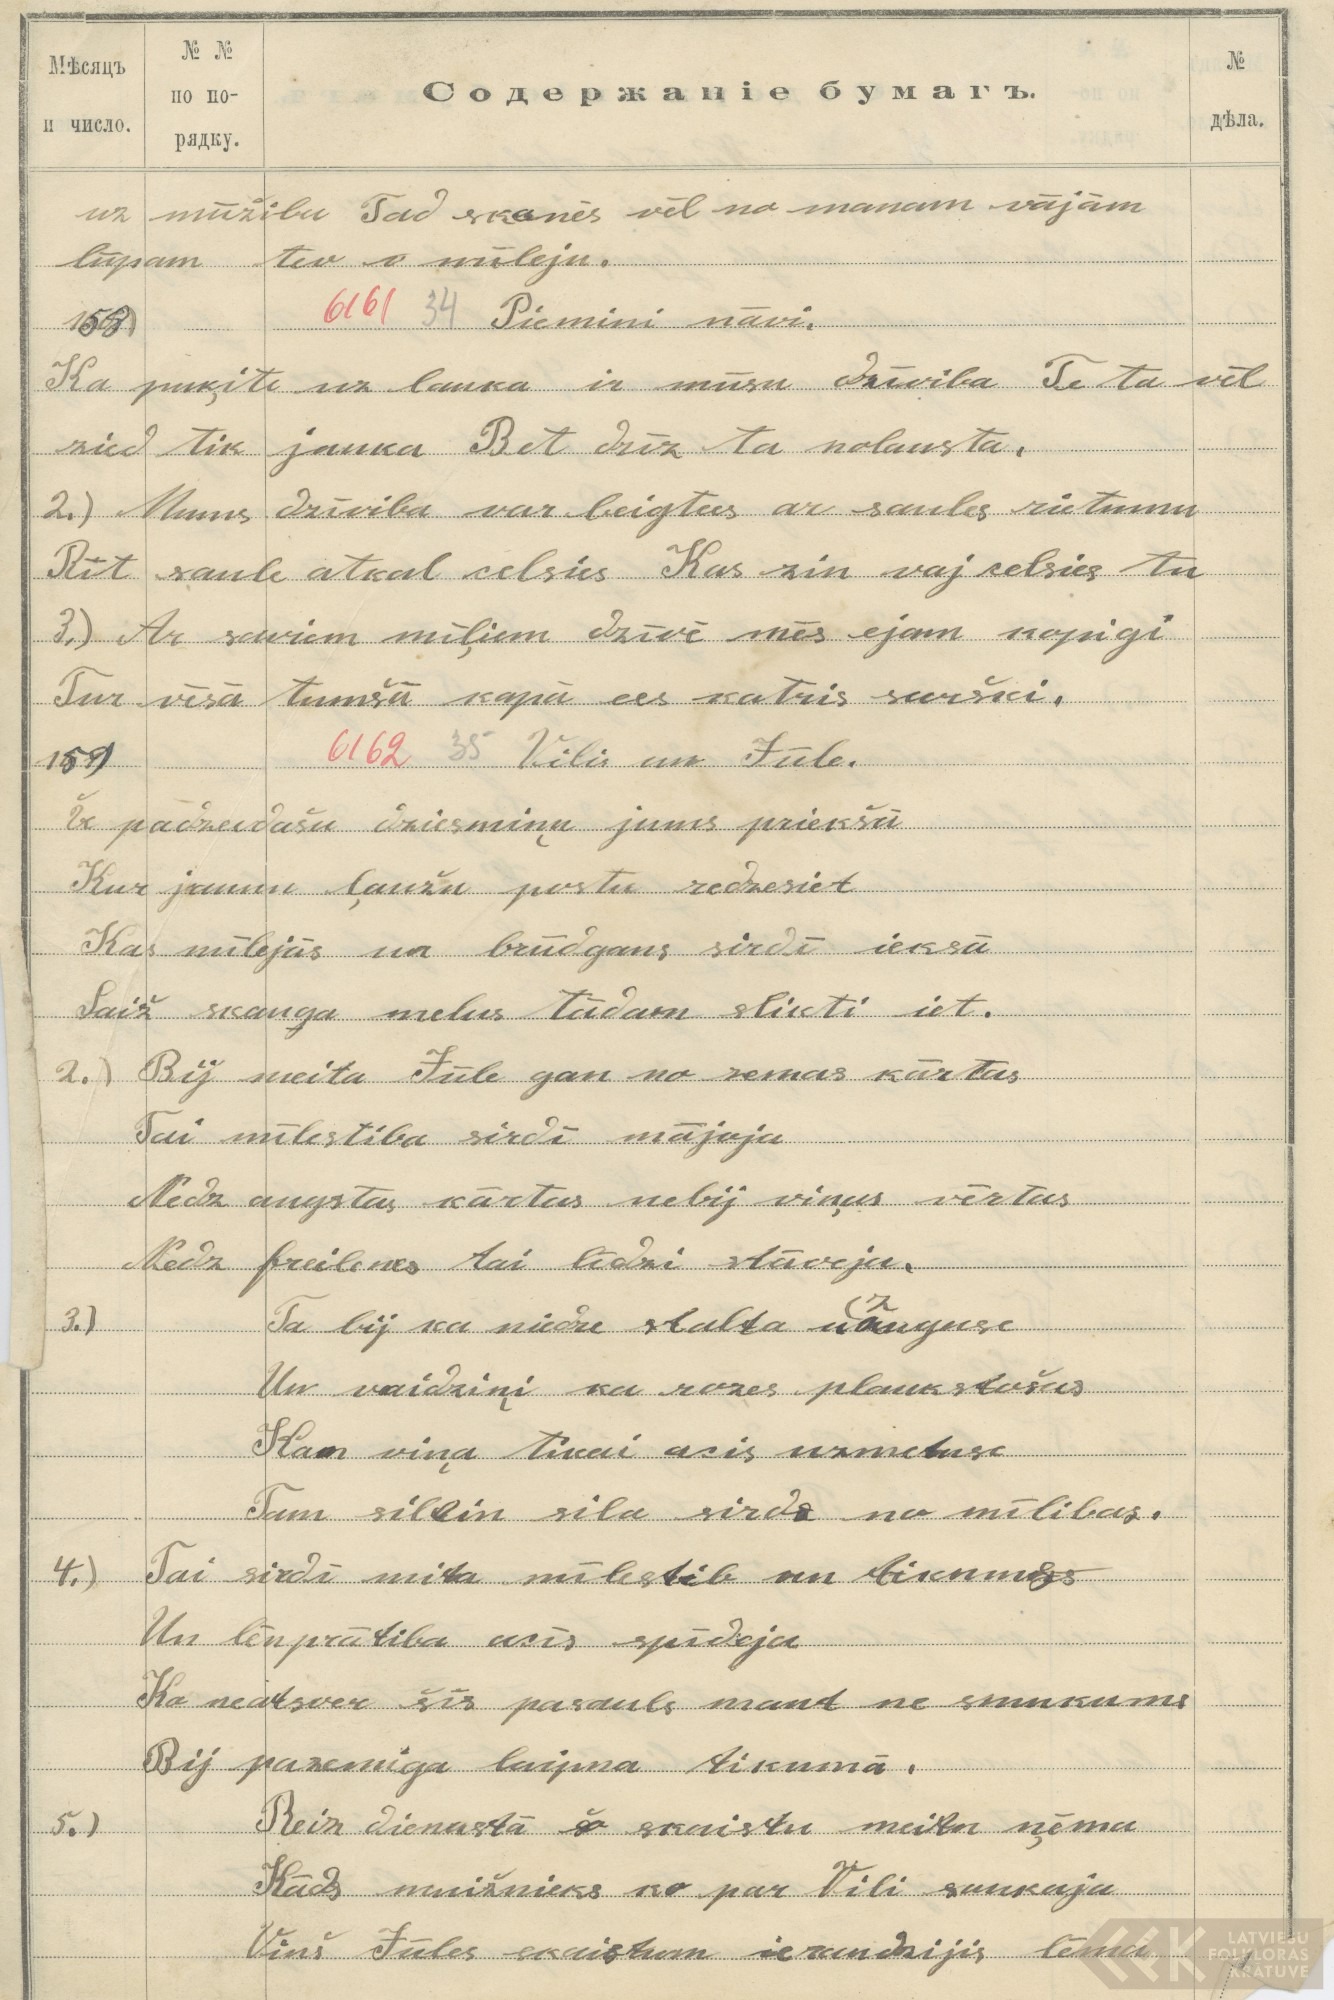 Мѣсяцъ и число.
№ № по по-рядку.
Содержаніе бумагъ.
№ дѣла.
uz mūžibu Tad skanēs vēl no manam vājām
lūpam tev o mīleju.
158) 6161 34 Piemini nāvi.
Ka puķite uz lauka ir mūsu dzīviba Te ta vēl
zied tik jauka Bet drīz ta nolausta.
2.) Mums dzīviba var beigtees ar saules rietumu
Rīt saule atkal celsies Kas zin vaj celsies tu
3.) Ar saviem mīļiem dzīvē mēs ejam kopigi
Tur vēsā tumšā kapā ees katris savški.
159) 6162 35 Vilis un Jūle.
Es padzeedašu dziesmiņu jums priekšā
Kur jaunu ļaužu postu redzesiet
Kas mīlejās un brūdgans sirdī ieksā
Laiž skauga melus tādam slikti iet.
2.) Bij meita Jūle gan no zemas kārtas
Tai mīlestiba sirdī mājoja
Nedz augstas kārtas nebij viņas vērtas
Nedz freilenes tai līdzi stāveja.
3.) Ta bij ka niedre stalta uzauguse
Un vaidziņi ka rozes plaukstošas
Kam viņa tikai acis uzmetuse
Tam siltin sila sirds no mīlibas.
4.) Tai sirdī mita mīlestib un tikums
Un lēnprātiba acīs spīdeja
Ko neatsver šīs pasauls mant ne smukums
Bij pazemiga laipna tikumā.
5.) Reiz dienastā šo skaistu meitu ņēma
Kāds muižnieks ko par Vili saukaja
Viņš Jūles skaistum ieraudzijis lēma
LATVIEŠU
FOLKLORAS
KRĀTUVE